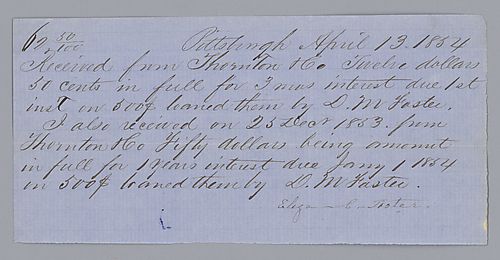 62 50/100 Pittsburgh April 13. 1854
Received from Thornton & Co Twelve dollars
50 cents in full for 3 mos interest due 1st
inst on 500$ loaned them by D. M Foster.
I also received on 25 Decr 1853. from
Thornton & Co Fifty dollars being amount
in full for 1 years interest due Jany 1 1854
on 500$ loaned them by D. M Foster.
Eliza C. Foster.